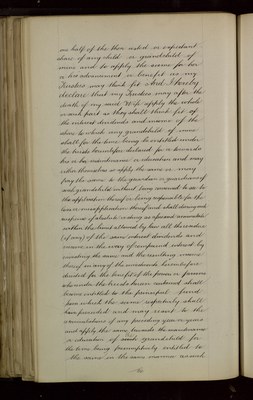 one half of the then vested or expectant
share of any child or grandchild of
mine and to apply the same for his
or her advancement or benefit as my
Trustees may think fit And I hereby
declare that my Trustees may after the
death of my said Wife apply the whole
or such part as they shall think fit of
the interest dividends and income of the
share to which any grandchild of mine
shall for the time being be entitled under
the trusts hereinbefore declared for or towards
his or her maintenance or education and may
either themselves so apply the same or may
pay the same to the guardian or guardians of
such grandchild without being bound to see to
the application thereof or being responsible for the
loss or misapplication thereof and shall during such
suspense of absolute vesting as aforesaid accumulate
within the limit allowed by law all the residue
(if any) of the same interest dividends and
income in the way of compound interest by
investing the same and the resulting income
thereof in any of the investments hereinbefore
directed for the benefit of the person or persons
who under the trusts herein contained shall
become entitled to the principal fund
from which the same respectively shall
have proceeded and may resort to the
accumulations of any preceding year or years
and apply the same towards the maintenance
or education of such grandchild for
the time being presumptively entitled to
the same in the same manner as such